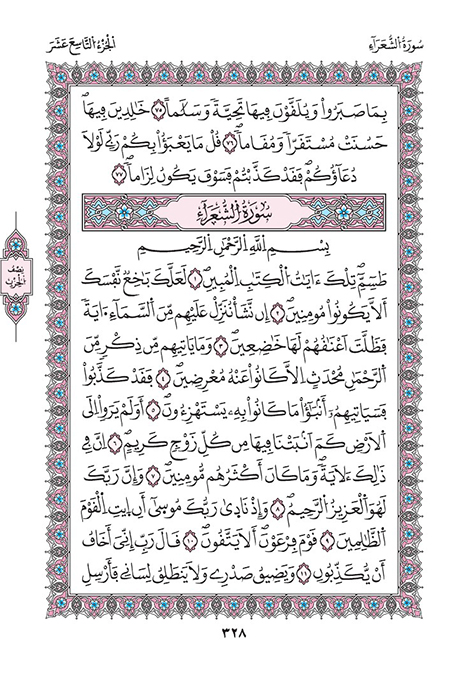 سُورَةُ الشُّعَرَآءِ
الجُزْءُ التَّاسِعَ عَشَرَ
بِمَا صَبَرُواْ وَيُلَقَّوْنَ فِيهَا تَحِيَّةً وَسَلَٰماً ٧٥ خَٰلِدِينَ فِيهَا
حَسُنَتْ مُسْتَقَرّاً وَمُقَاماً ٧٦ قُلْ مَا يَعْبَؤُاْ بِكُمْ رَبِّے لَوْلَا
دُعَآؤُكُمْ فَقَدْ كَذَّبْتُمْ فَسَوْفَ يَكُونُ لِزَاماً ٧٧
سُورَةُ الشُّعَرَآءِ
بِسْمِ اللَّهِ الرَّحْمَٰنِ الرَّحِيمِ
طَسِٓمِّٓ تِلْكَ ءَايَٰتُ الْكِتَٰبِ الْمُبِينِ ١ لَعَلَّكَ بَٰخِعٌ نَّفْسَكَ
أَلَّا يَكُونُواْ مُومِنِينَ ٢ إِن نَّشَأْ نُنَزِّلْ عَلَيْهِم مِّنَ السَّمَآءِ ايَةً
فَظَلَّتَ اَعْنَٰقُهُمْ لَهَا خَٰضِعِينَ ٣ وَمَا يَاتِيهِم مِّن ذِكْرٍ مِّنَ
الرَّحْمَٰنِ مُحْدَثٍ اِلَّا كَانُواْ عَنْهُ مُعْرِضِينَ ٤ فَقَدْ كَذَّبُواْ
فَسَيَاتِيهِمُ أَنۢبَٰٓؤُاْ مَا كَانُواْ بِهِۦ يَسْتَهْزِءُونَ ٥ أَوَلَمْ يَرَوِاْ اِلَى
الَارْضِ كَمَ اَنۢبَتْنَا فِيهَا مِن كُلِّ زَوْجٍ كَرِيمٍ ٦ اِنَّ فِے
ذَٰلِكَ لَأيَةً وَمَا كَانَ أَكْثَرُهُم مُّومِنِينَ ٧ وَإِنَّ رَبَّكَ
لَهُوَ الْعَزِيزُ الرَّحِيمُ ٨ وَإِذْ نَادَىٰ رَبُّكَ مُوسَىٰٓ أَنِ ايتِ الْقَوْمَ
الظَّٰلِمِينَ ٩ قَوْمَ فِرْعَوْنَ أَلَا يَتَّقُونَ ١٠ قَالَ رَبِّ إِنِّيَ أَخَافُ
أَنْ يُّكَذِّبُونِ ١١ وَيَضِيقُ صَدْرِے وَلَا يَنطَلِقُ لِسَانِے فَأَرْسِلِ
نِصْف
الحِزْب
٣٢٨